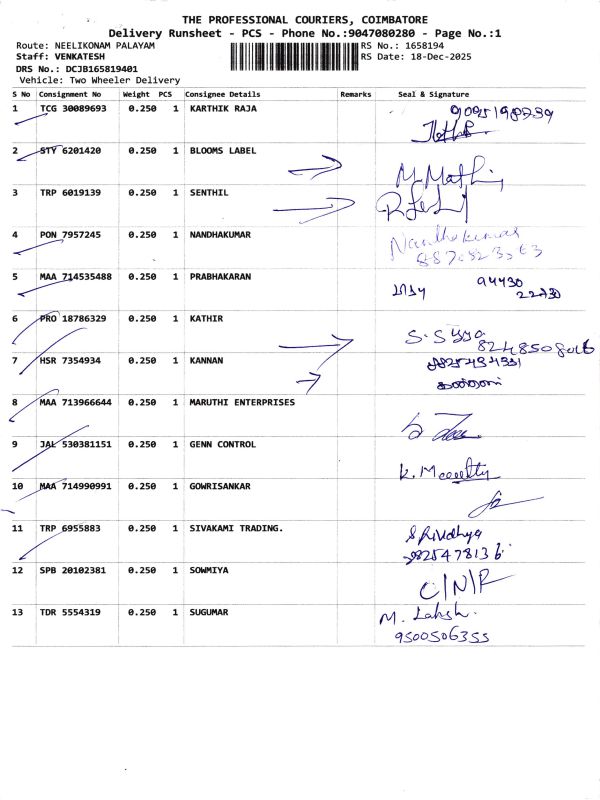 THE PROFESSIONAL COURIERS, COIMBATORE
Delivery Runsheet - PCS - Phone No.:9047080280 - Page No.:1
Route: NEELIKONAM PALAYAM
RS No.: 1658194
Staff: VENKATESH
RS Date: 18-Dec-2025
DRS No.: DCJB165819401
Vehicle: Two Wheeler Delivery
S No Consignment No Weight PCS Consignee Details Remarks Seal & Signature
1 TCG 30089693 0.250 1 KARTHIK RAJA
2 STY 6201420 0.250 1 BLOOMS LABEL
3 TRP 6019139 0.250 1 SENTHIL
4 PON 7957245 0.250 1 NANDHAKUMAR Nandhakumar
5 MAA 714535488 0.250 1 PRABHAKARAN
94430
22730
6 PRO 18786329 0.250 1 KATHIR
7 HSR 7354934 0.250 1 KANNAN
8 MAA 713966644 0.250 1 MARUTHI ENTERPRISES
9 JAL 530381151 0.250 1 GENN CONTROL
10 MAA 714990991 0.250 1 GOWRISANKAR
11 TRP 6955883 0.250 1 SIVAKAMI TRADING. Srividhya
9825478136
12 SPB 20102381 0.250 1 SOWMIYA C/N/R
13 TDR 5554319 0.250 1 SUGUMAR M. Laksh.
9500506355